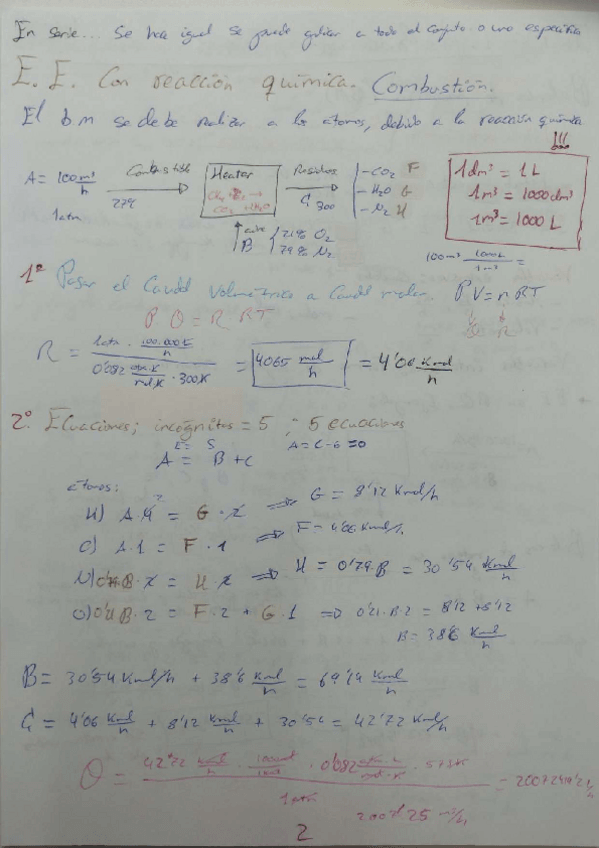 En serie... Se hace igual se puede aplicar a todo el conjunto o uno específico
E.E. Con reacción química. Combustión.
El b m se debe realizar a los átomos, debido a la reacción química
A = 100 m³/h
1 atm
Combustible
27ºC
Heater
CH₄ + O₂ → CO₂ + H₂O
Residuos
C 300
- CO₂ F
- H₂O G
- N₂ H
1 dm³ = 1 L
1 m³ = 1000 dm³
1 m³ = 1000 L
aire
B { 21% O₂
79% N₂
100 m³ · 1000 L / 1 m³ =
1º Pasar el Caudal Volumétrico a Caudal molar. PV = nRT
P Q = n RT
n = 1 atm · 100.000 L/h / 0'082 atm·L/mol·K · 300 K = 4065 mol/h = 4'06 Kmol/h
2º Ecuaciones; incógnitas = 5 ; 5 ecuaciones
E = S A = C - G = 0
A = B + C
átomos:
H) A·4 = G·2 ⇒ G = 8'12 Kmol/h
C) A·1 = F·1 ⇒ F = 4'06 Kmol/h
N) B·2 = H·2 ⇒ H = 0'79·B = 30'54 Kmol/h
O) 0'21·B·2 = F·2 + G·1 ⇒ 0'21·B·2 = 8'12 + 8'12
B = 38'6 Kmol/h
B = 30'54 Kmol/h + 38'6 Kmol/h = 69'14 Kmol/h
C = 4'06 Kmol/h + 8'12 Kmol/h + 30'54 = 42'72 Kmol/h
Q = 42'72 Kmol/h · 1000 mol/1 Kmol · 0'082 atm·L/mol·K · 573 K / 1 atm
2